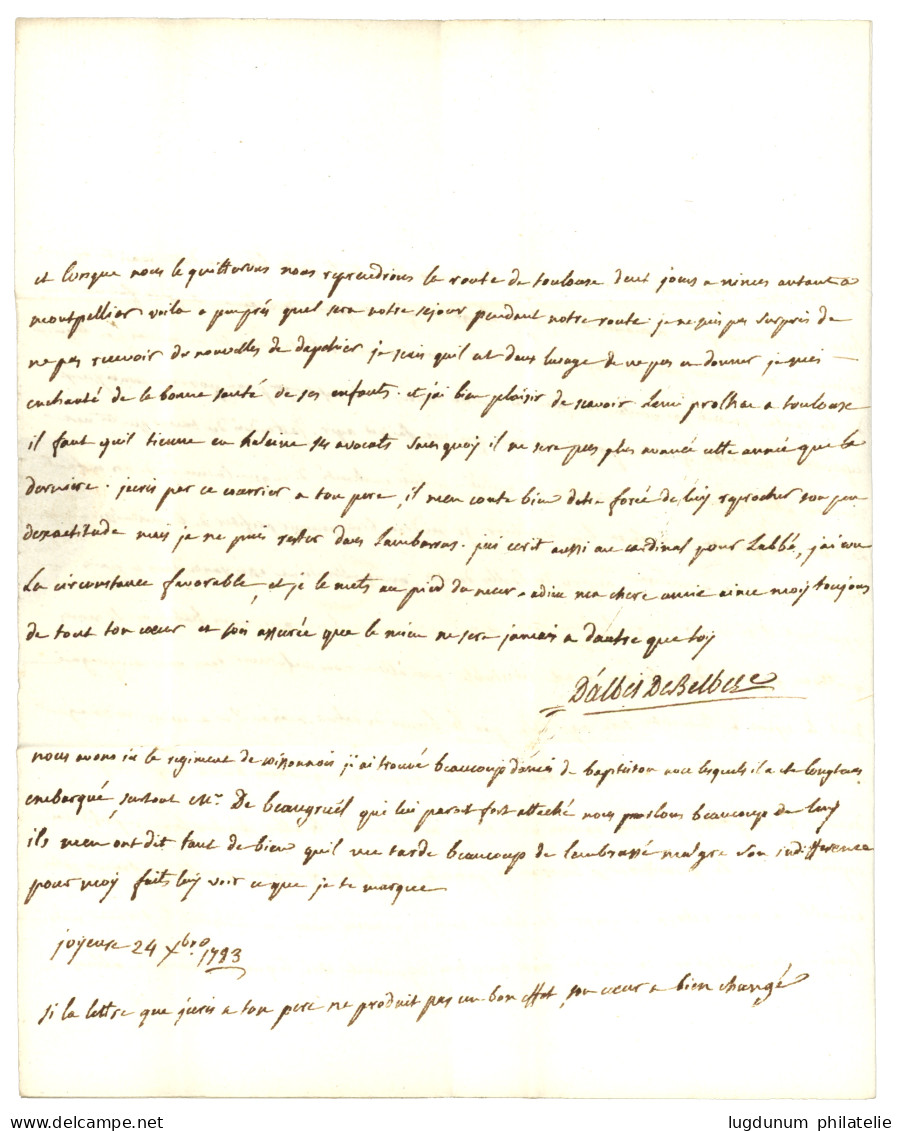 et lorsque nous le quitterons nous reprendrons la route de toulouse deux jours a nimes autant a
montpellier voila a peuprés quel sera notre sejour pendant notre route. je ne suis pas surpris de
ne pas recevoir de nouvelles de dapchier je scais quil est dans lusage de ne pas en donner je suis
enchanté de la bonne santé de ses enfants. et jai bien plaisir de scavoir prolhac a toulouse
il faut quil tienne en haleine ses avocats sans quoy il ne sera pas plus avancé cette année que la
derniere. jecris par ce courrier a ton pere, il men coute bien detre forcé de luy reprocher son peu
dexactitude mais je ne puis rester dans lambarras. jai ecrit aussi au cardinal pour Labbé, jai eu
La circonstance favorable, et je le mets au pied du mur. adieu ma chere amie aime moy toujours
de tout ton cœur et sois assurée que le mien ne sera jamais a dautre que toy
D'albis De Belbeze
nous avons ici le regiment de jai trouvé beaucoup damis de baptiston avec lesquels il a été longtems
embarqué, surtout Mr. De beaugruél qui lui parait fort attaché nous parlons beaucoup de luy
ils men ont dit tant de bien quil me tarde beaucoup de lambrassé malgre son indifference
pour moy faits luy voir ce que je te marque
joyeuse 24 Xbro 1783
si la lettre que jecris a ton pere ne produit pas un bon effet, son cœur a bien changé
lugdunum philatelie